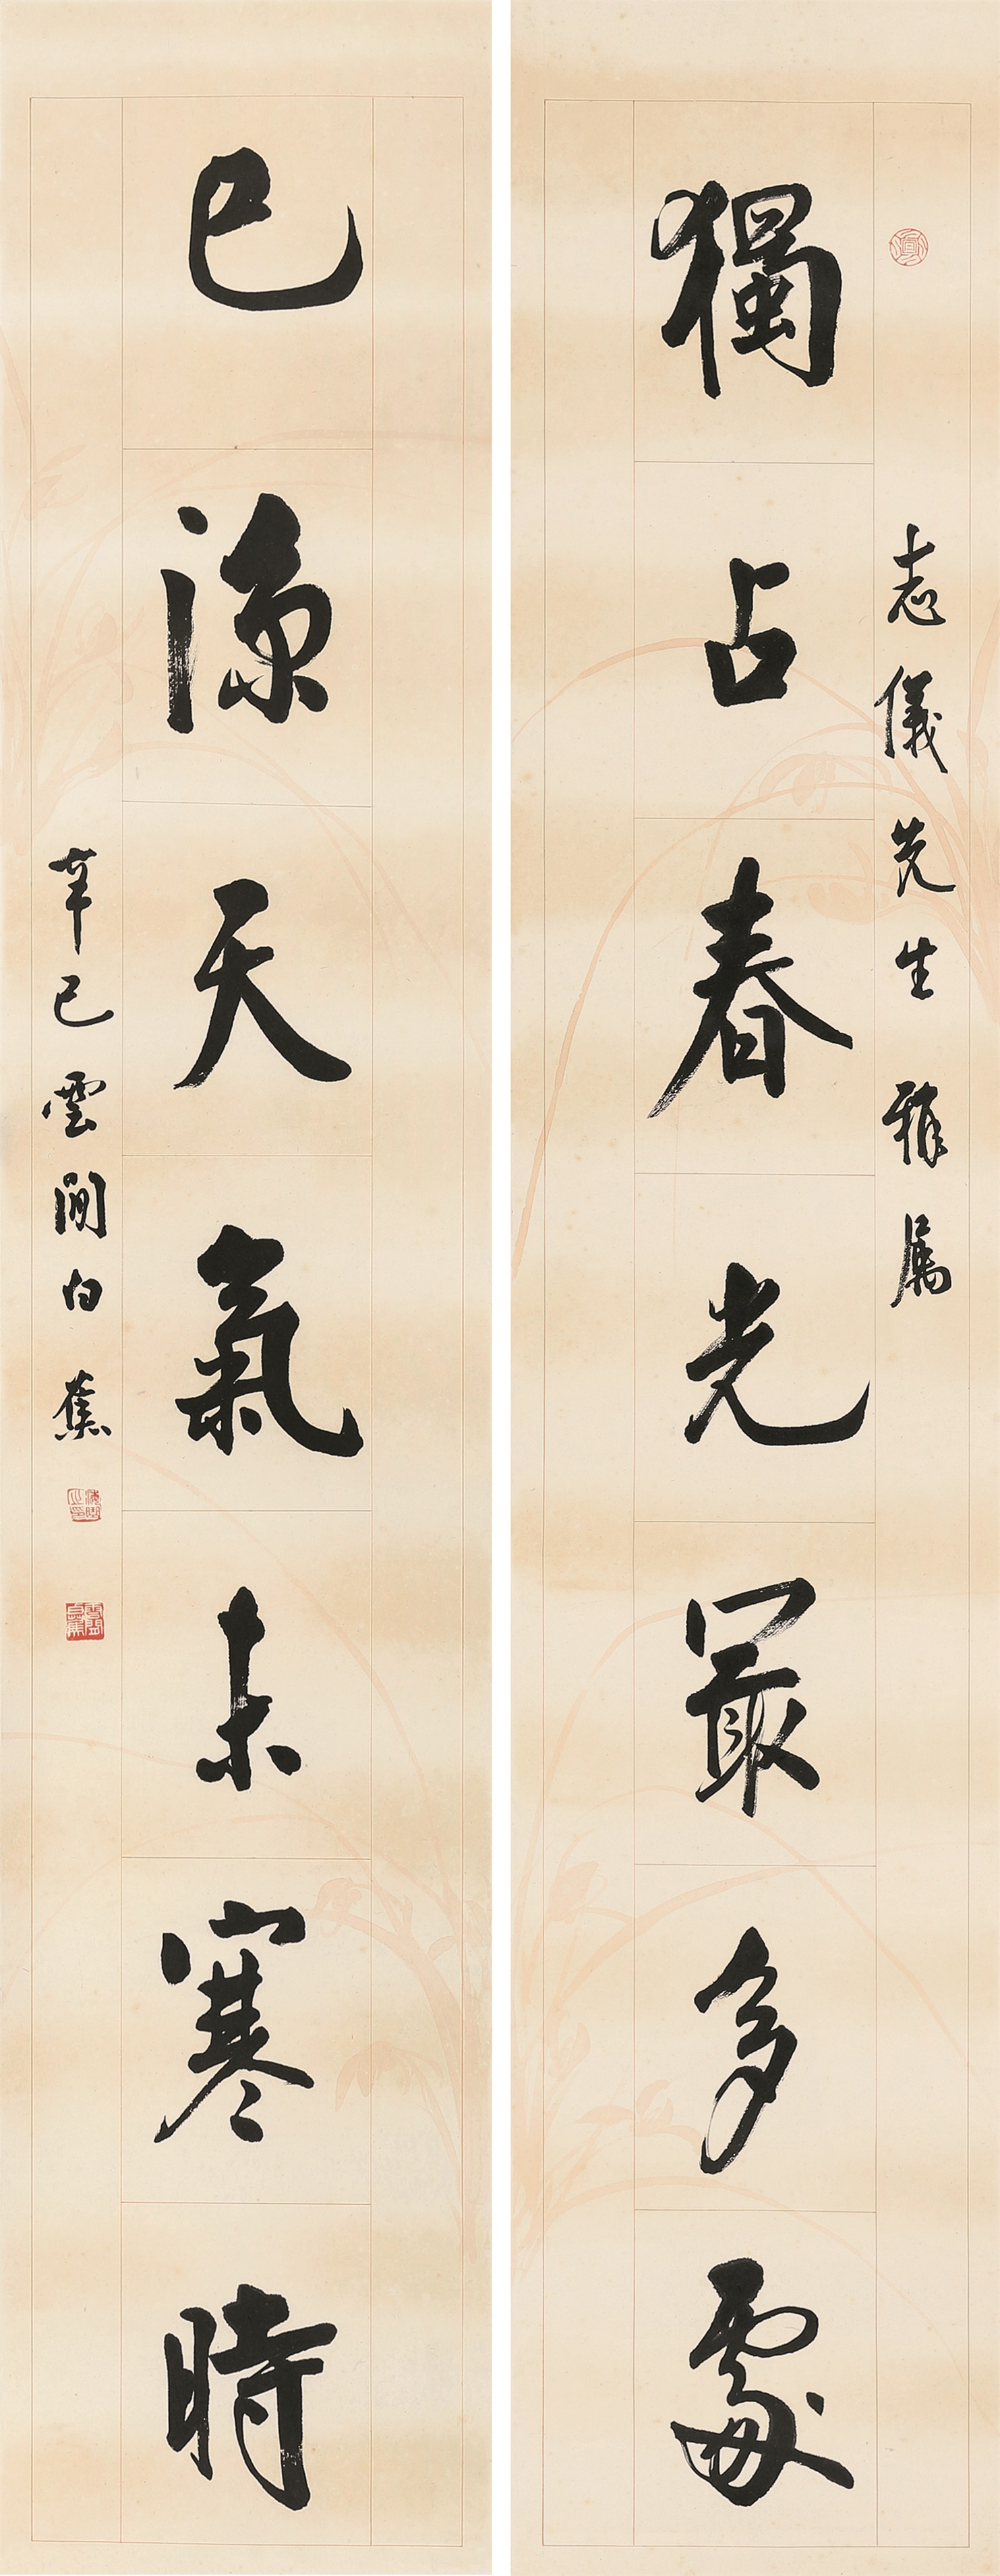 志儀先生雅属
獨占春光最多處
已涼天氣未寒時
辛巳雲間白蕉